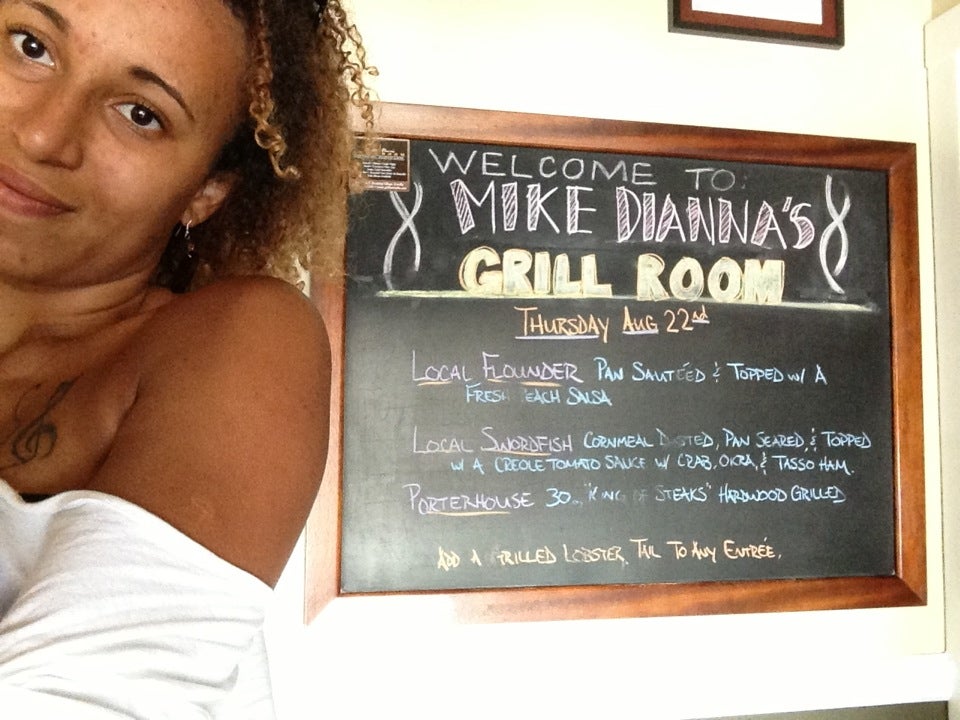 WELCOME TO:
MIKE DIANNA'S
GRILL ROOM
THURSDAY AUG 22nd
LOCAL FLOUNDER PAN SAUTÉED & TOPPED W/ A
FRESH PEACH SALSA
LOCAL SWORDFISH CORNMEAL DUSTED, PAN SEARED, & TOPPED
W/ A CREOLE TOMATO SAUCE W/ CRAB, OKRA, & TASSO HAM.
PORTERHOUSE 30oz "KING OF STEAKS" HARDWOOD GRILLED
ADD A GRILLED LOBSTER TAIL TO ANY ENTRÉE.